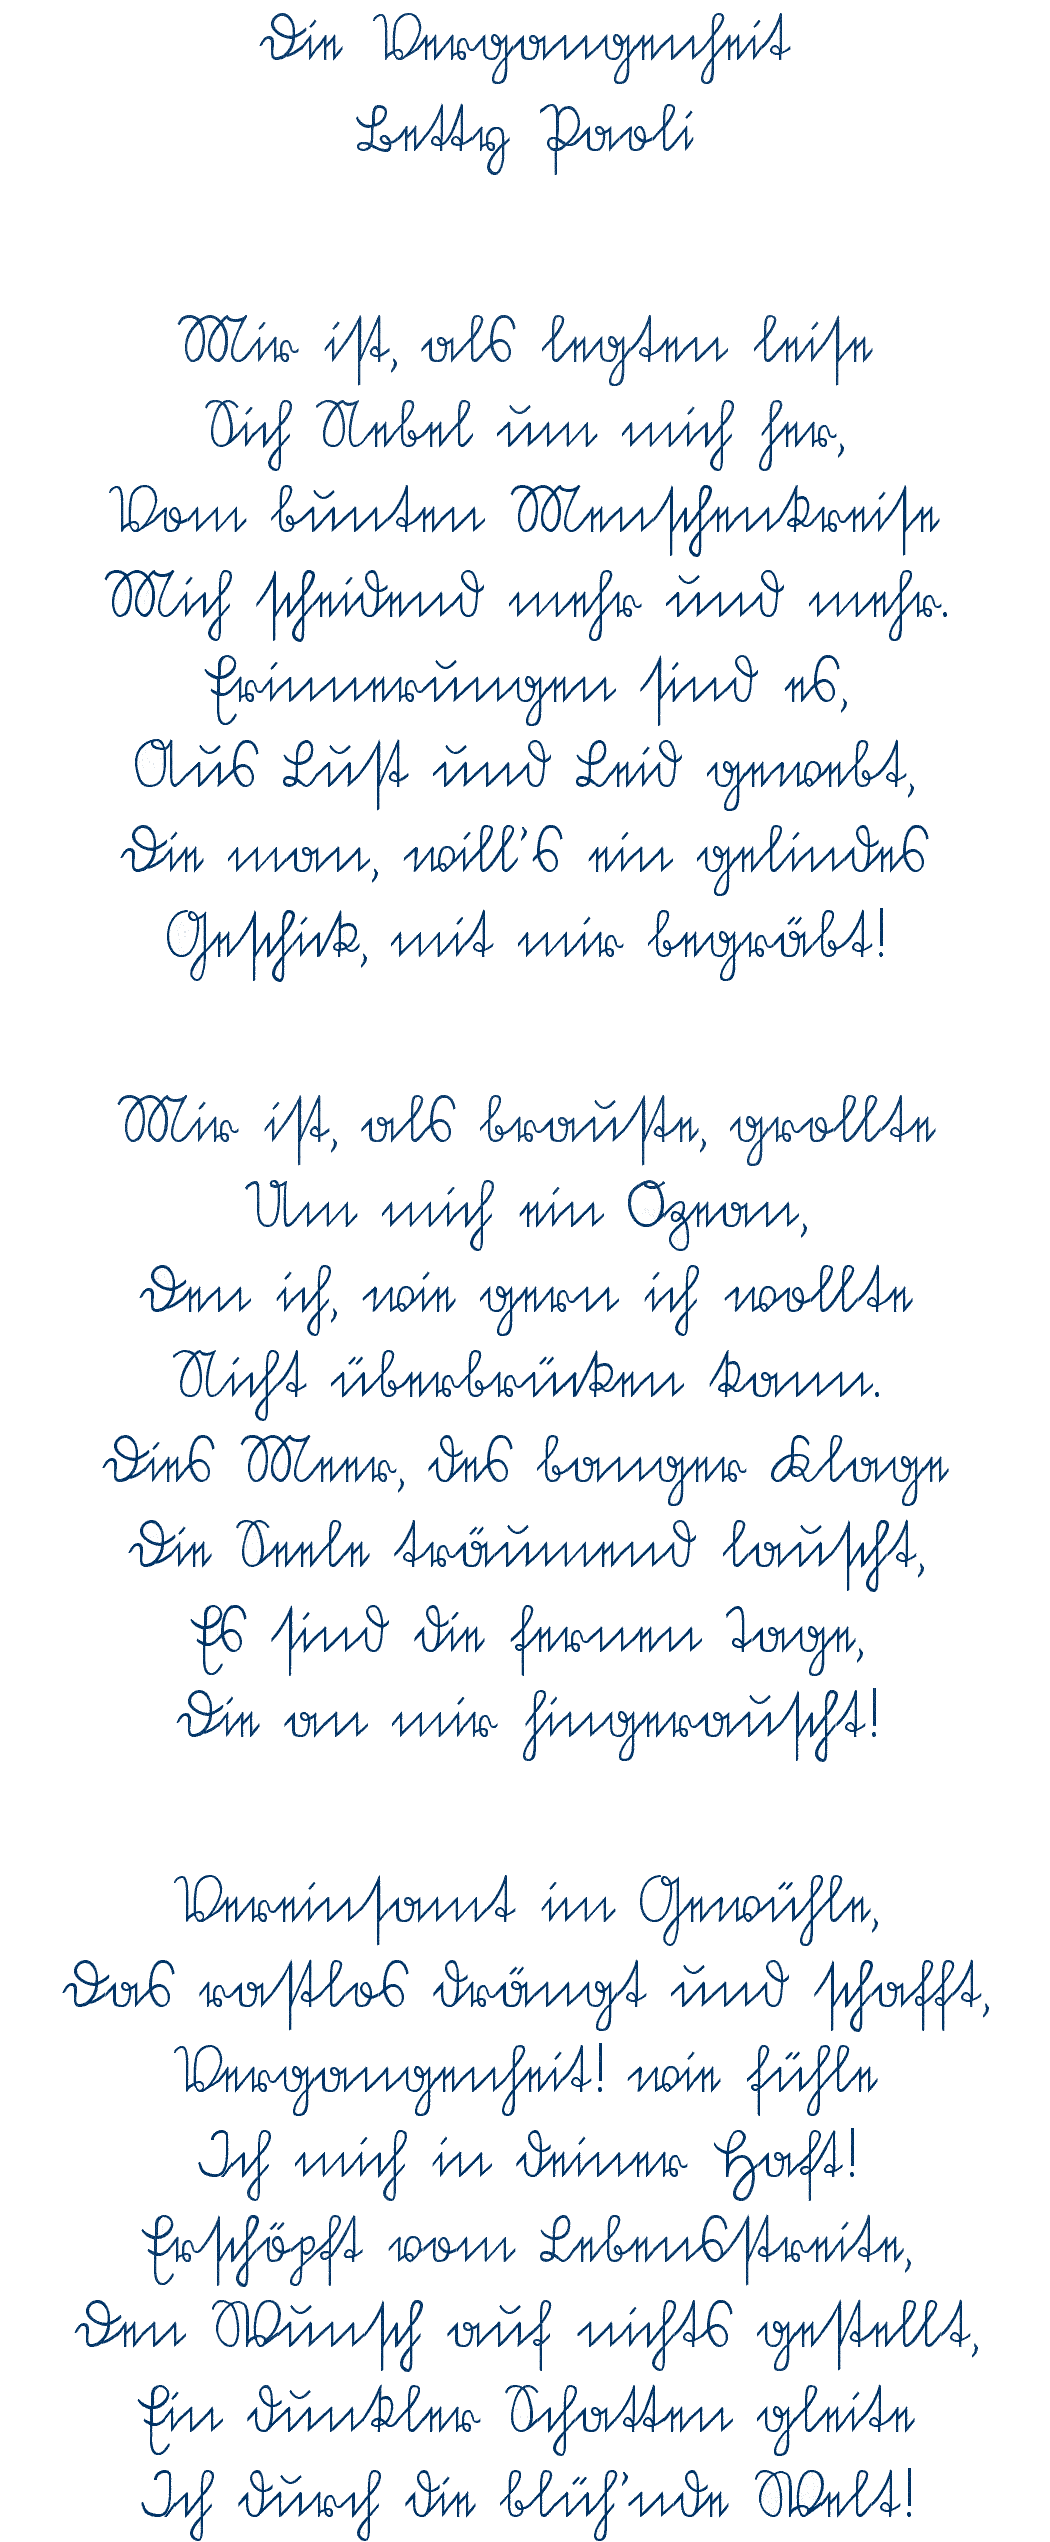 Die Vergangenheit
Betty Paoli
Mir ist, als legten leise
Sich Nebel um mich her,
Vom bunten Menschenkreise
Mich scheidend mehr und mehr.
Erinnerungen sind es,
Aus Lust und Leid gewebt,
Die man, will's ein gelindes
Geschick, mit mir begräbt!
Mir ist, als brauste, grollte
Um mich ein Ozean,
Den ich, wie gern ich wollte
Nicht überbrücken kann.
Dies Meer, des banger Klage
Die Seele träumend lauscht,
Es sind die fernen Tage,
Die an mir hingerauscht!
Vereinsamt im Gewühle,
Das rastlos drängt und schafft,
Vergangenheit! wie fühle
Ich mich in deiner Haft!
Erschöpft vom Lebensstreite,
Den Wunsch auf nichts gestellt,
Ein dunkler Schatten gleite
Ich durch die blüh'nde Welt!